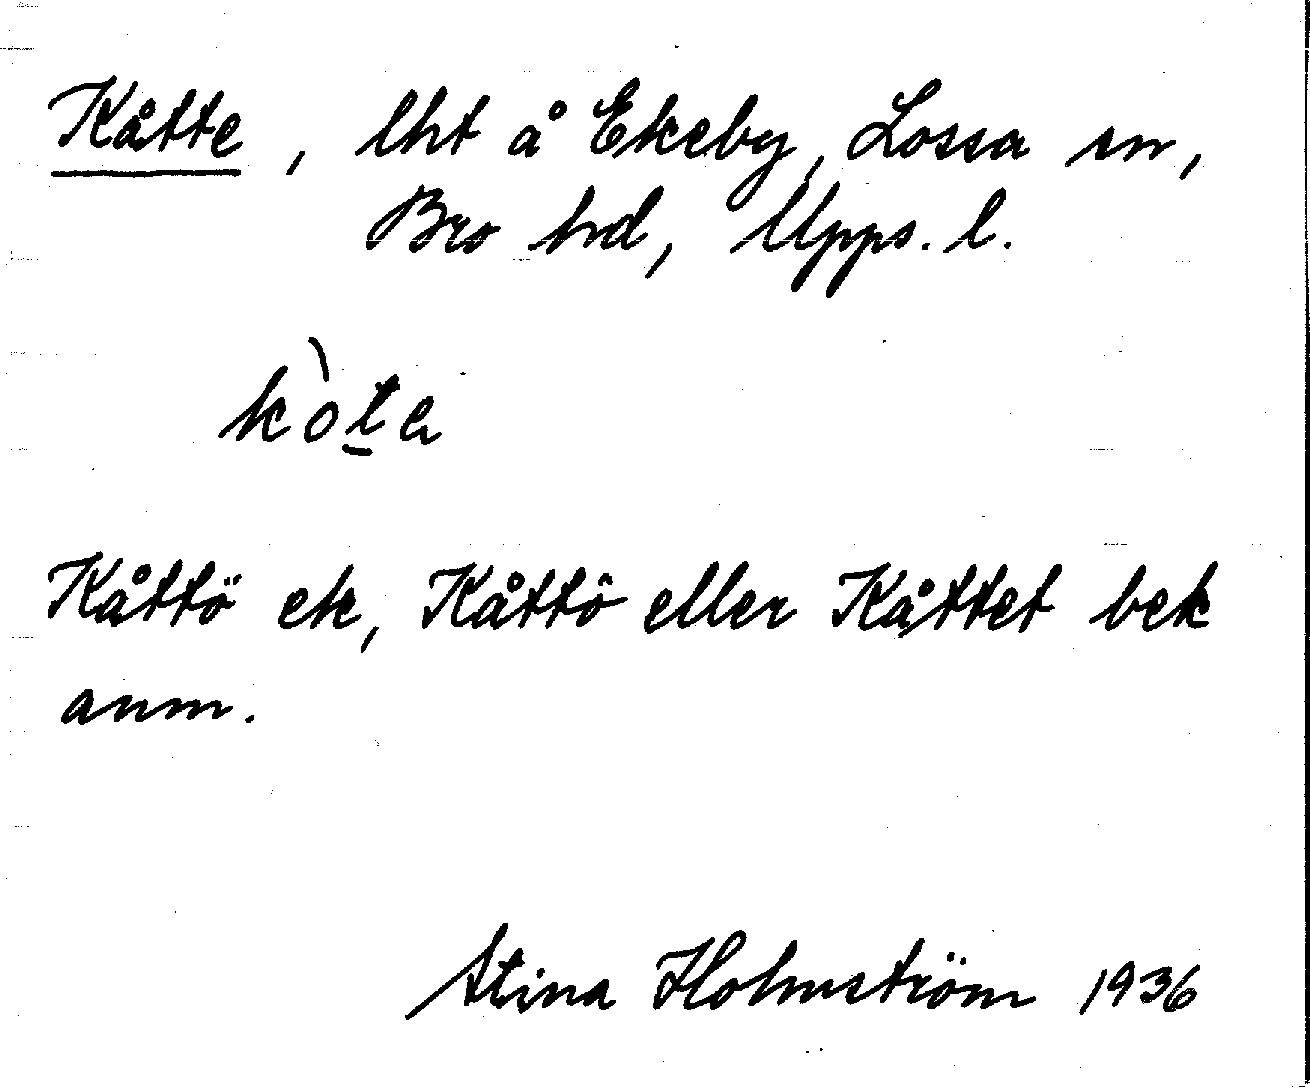 Kåtte, lht å Ekeby, Lossa sn,
Bro hd, Upps. l.
kòt̠e
Kåttö ek, Kåttö eller Kåttet bek
anm.
Stina Holmström 1936